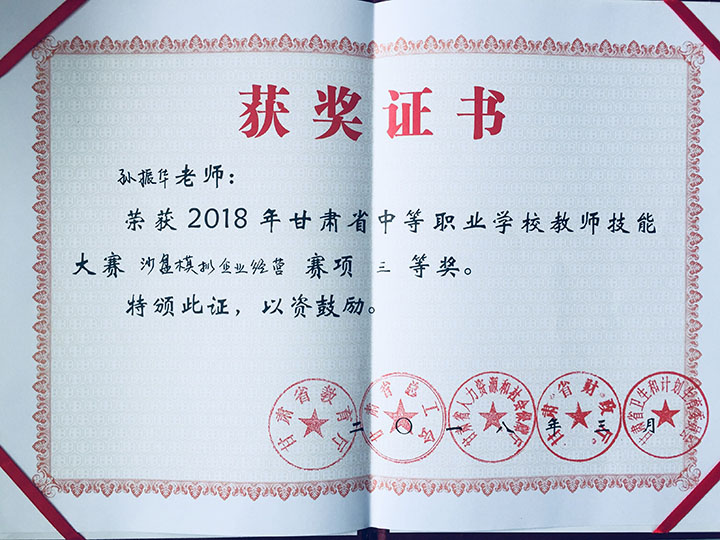 获奖证书
孙振华老师：
荣获2018年甘肃省中等职业学校教师技能
大赛 沙盘模拟企业经营 赛项 三 等奖。
特颁此证，以资鼓励。
甘肃省教育厅
甘肃省总工会
甘肃省人力资源和社会保障厅
甘肃省财政厅
甘肃省卫生和计划生育委员会
二〇一八年三月